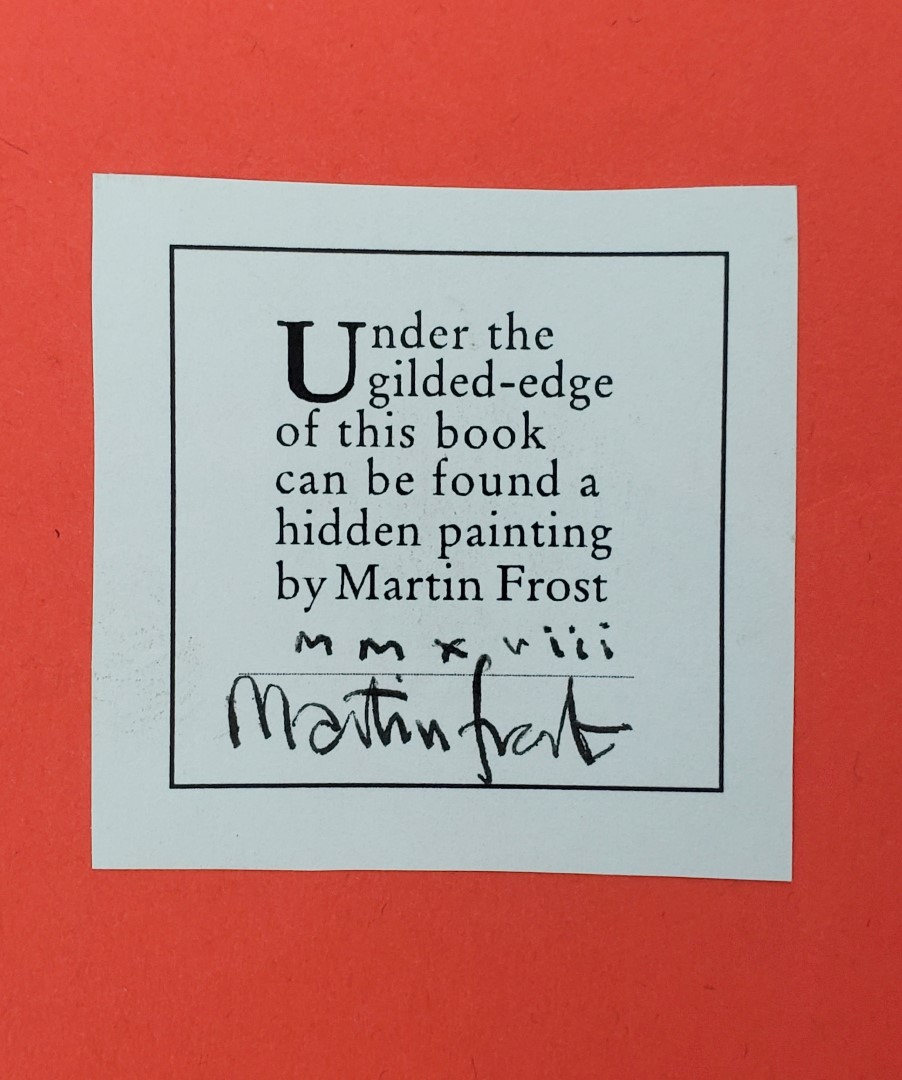 Under the
gilded-edge
of this book
can be found a
hidden painting
by Martin Frost
m m x viii
Martin frost